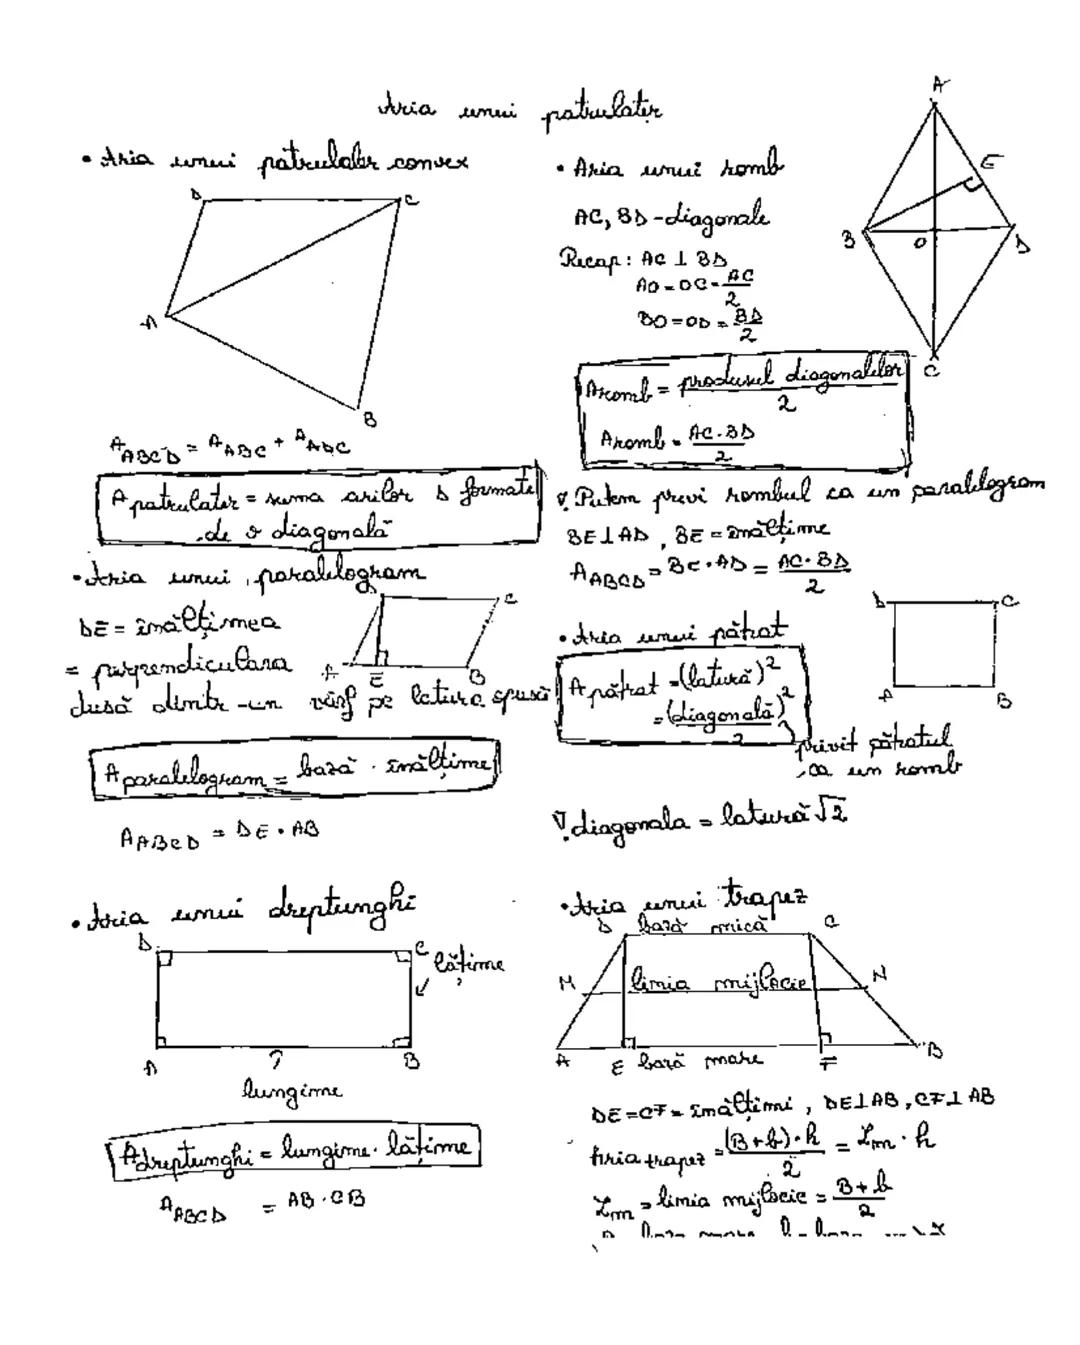 Aria unui patrulater
• Aria unui patrulater convex
D
C
A
B
A ABCD = A ABC + A ADC
A patrulater = suma ariilor Δ formate
de o diagonală
• Aria unui paralelogram
D
C
A
E
B
DE = înălțimea
= perpendiculara
dusă dintr-un vârf pe latura opusă
A paralelogram = bază · înălțime
A ABCD = DE · AB
• Aria unui dreptunghi
D
C
lățime
A
B
lungime
A dreptunghi = lungime · lățime
A ABCD = AB · CB
• Aria unui romb
A
E
B
O
D
C
AC, BD - diagonale
Recap: AC ⊥ BD
AO = OC = AC/2
BO = OD = BD/2
A romb = produsul diagonalelor/2
A romb = AC·BD/2
! Putem privi rombul ca un paralelogram
BE ⊥ AD, BE = înălțime
A ABCD = BE · AD = AC·BD/2
• Aria unui pătrat
D
C
A
B
A pătrat = (latură)²
= (diagonală)²/2
privit pătratul
ca un romb
! diagonala = latură√2
• Aria unui trapez
D bază mică C
M linia mijlocie N
A E bază mare F B
DE = CF = înălțimi, DE ⊥ AB, CF ⊥ AB
Aria trapez = (B+b)·h/2 = Lm · h
Lm = linia mijlocie = B+b/2